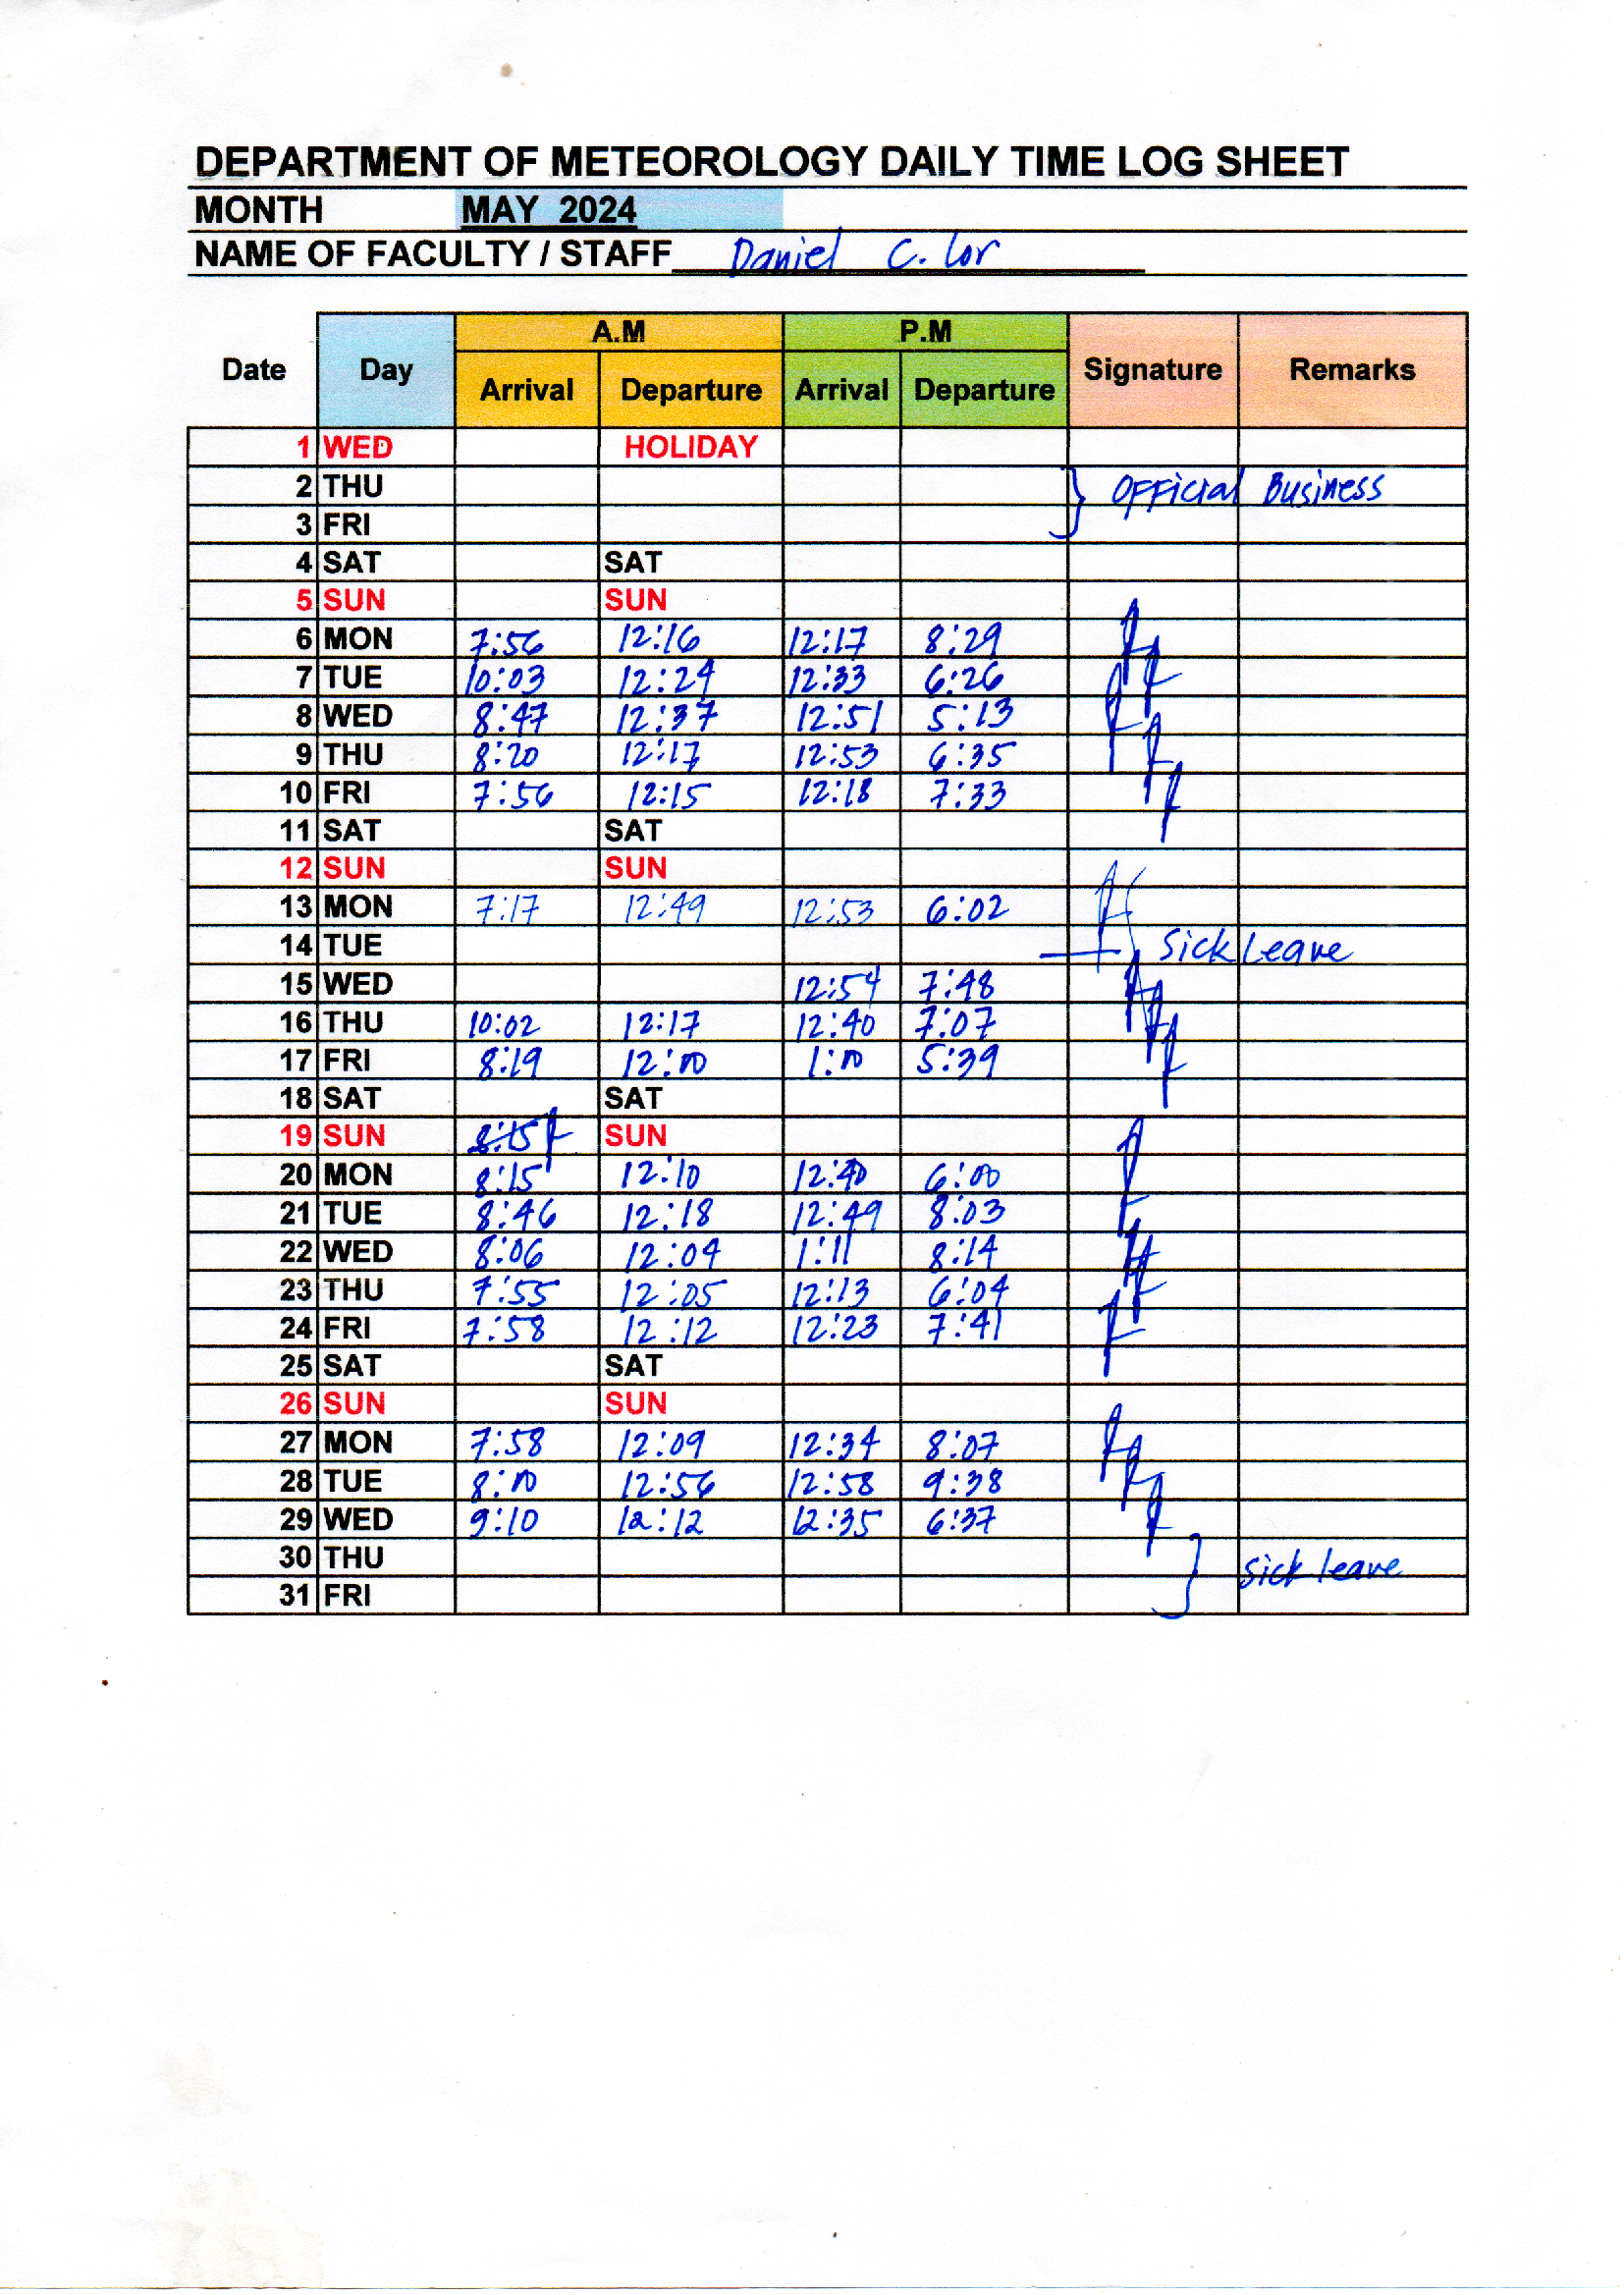 DEPARTMENT OF METEOROLOGY DAILY TIME LOG SHEET
MONTH MAY 2024
NAME OF FACULTY / STAFF Daniel C. Lor
Date Day A.M P.M Signature Remarks
Arrival Departure Arrival Departure
1 WED HOLIDAY
2 THU Official Business
3 FRI
4 SAT SAT
5 SUN SUN
6 MON 7:56 12:16 12:17 8:29
7 TUE 10:03 12:24 12:33 6:26
8 WED 8:47 12:37 12:51 5:13
9 THU 8:20 12:17 12:53 6:35
10 FRI 7:56 12:15 12:18 7:33
11 SAT SAT
12 SUN SUN
13 MON 7:17 12:49 12:53 6:02
14 TUE Sick Leave
15 WED 12:54 7:48
16 THU 10:02 12:17 12:40 7:07
17 FRI 8:19 12:00 1:00 5:39
18 SAT SAT
19 SUN 8:15 SUN
20 MON 8:15 12:10 12:40 6:00
21 TUE 8:46 12:18 12:49 8:03
22 WED 8:06 12:04 1:11 8:14
23 THU 7:55 12:05 12:13 6:04
24 FRI 7:58 12:12 12:23 7:41
25 SAT SAT
26 SUN SUN
27 MON 7:58 12:09 12:34 8:07
28 TUE 8:00 12:56 12:58 9:38
29 WED 9:10 12:12 12:35 6:37
30 THU sick leave
31 FRI